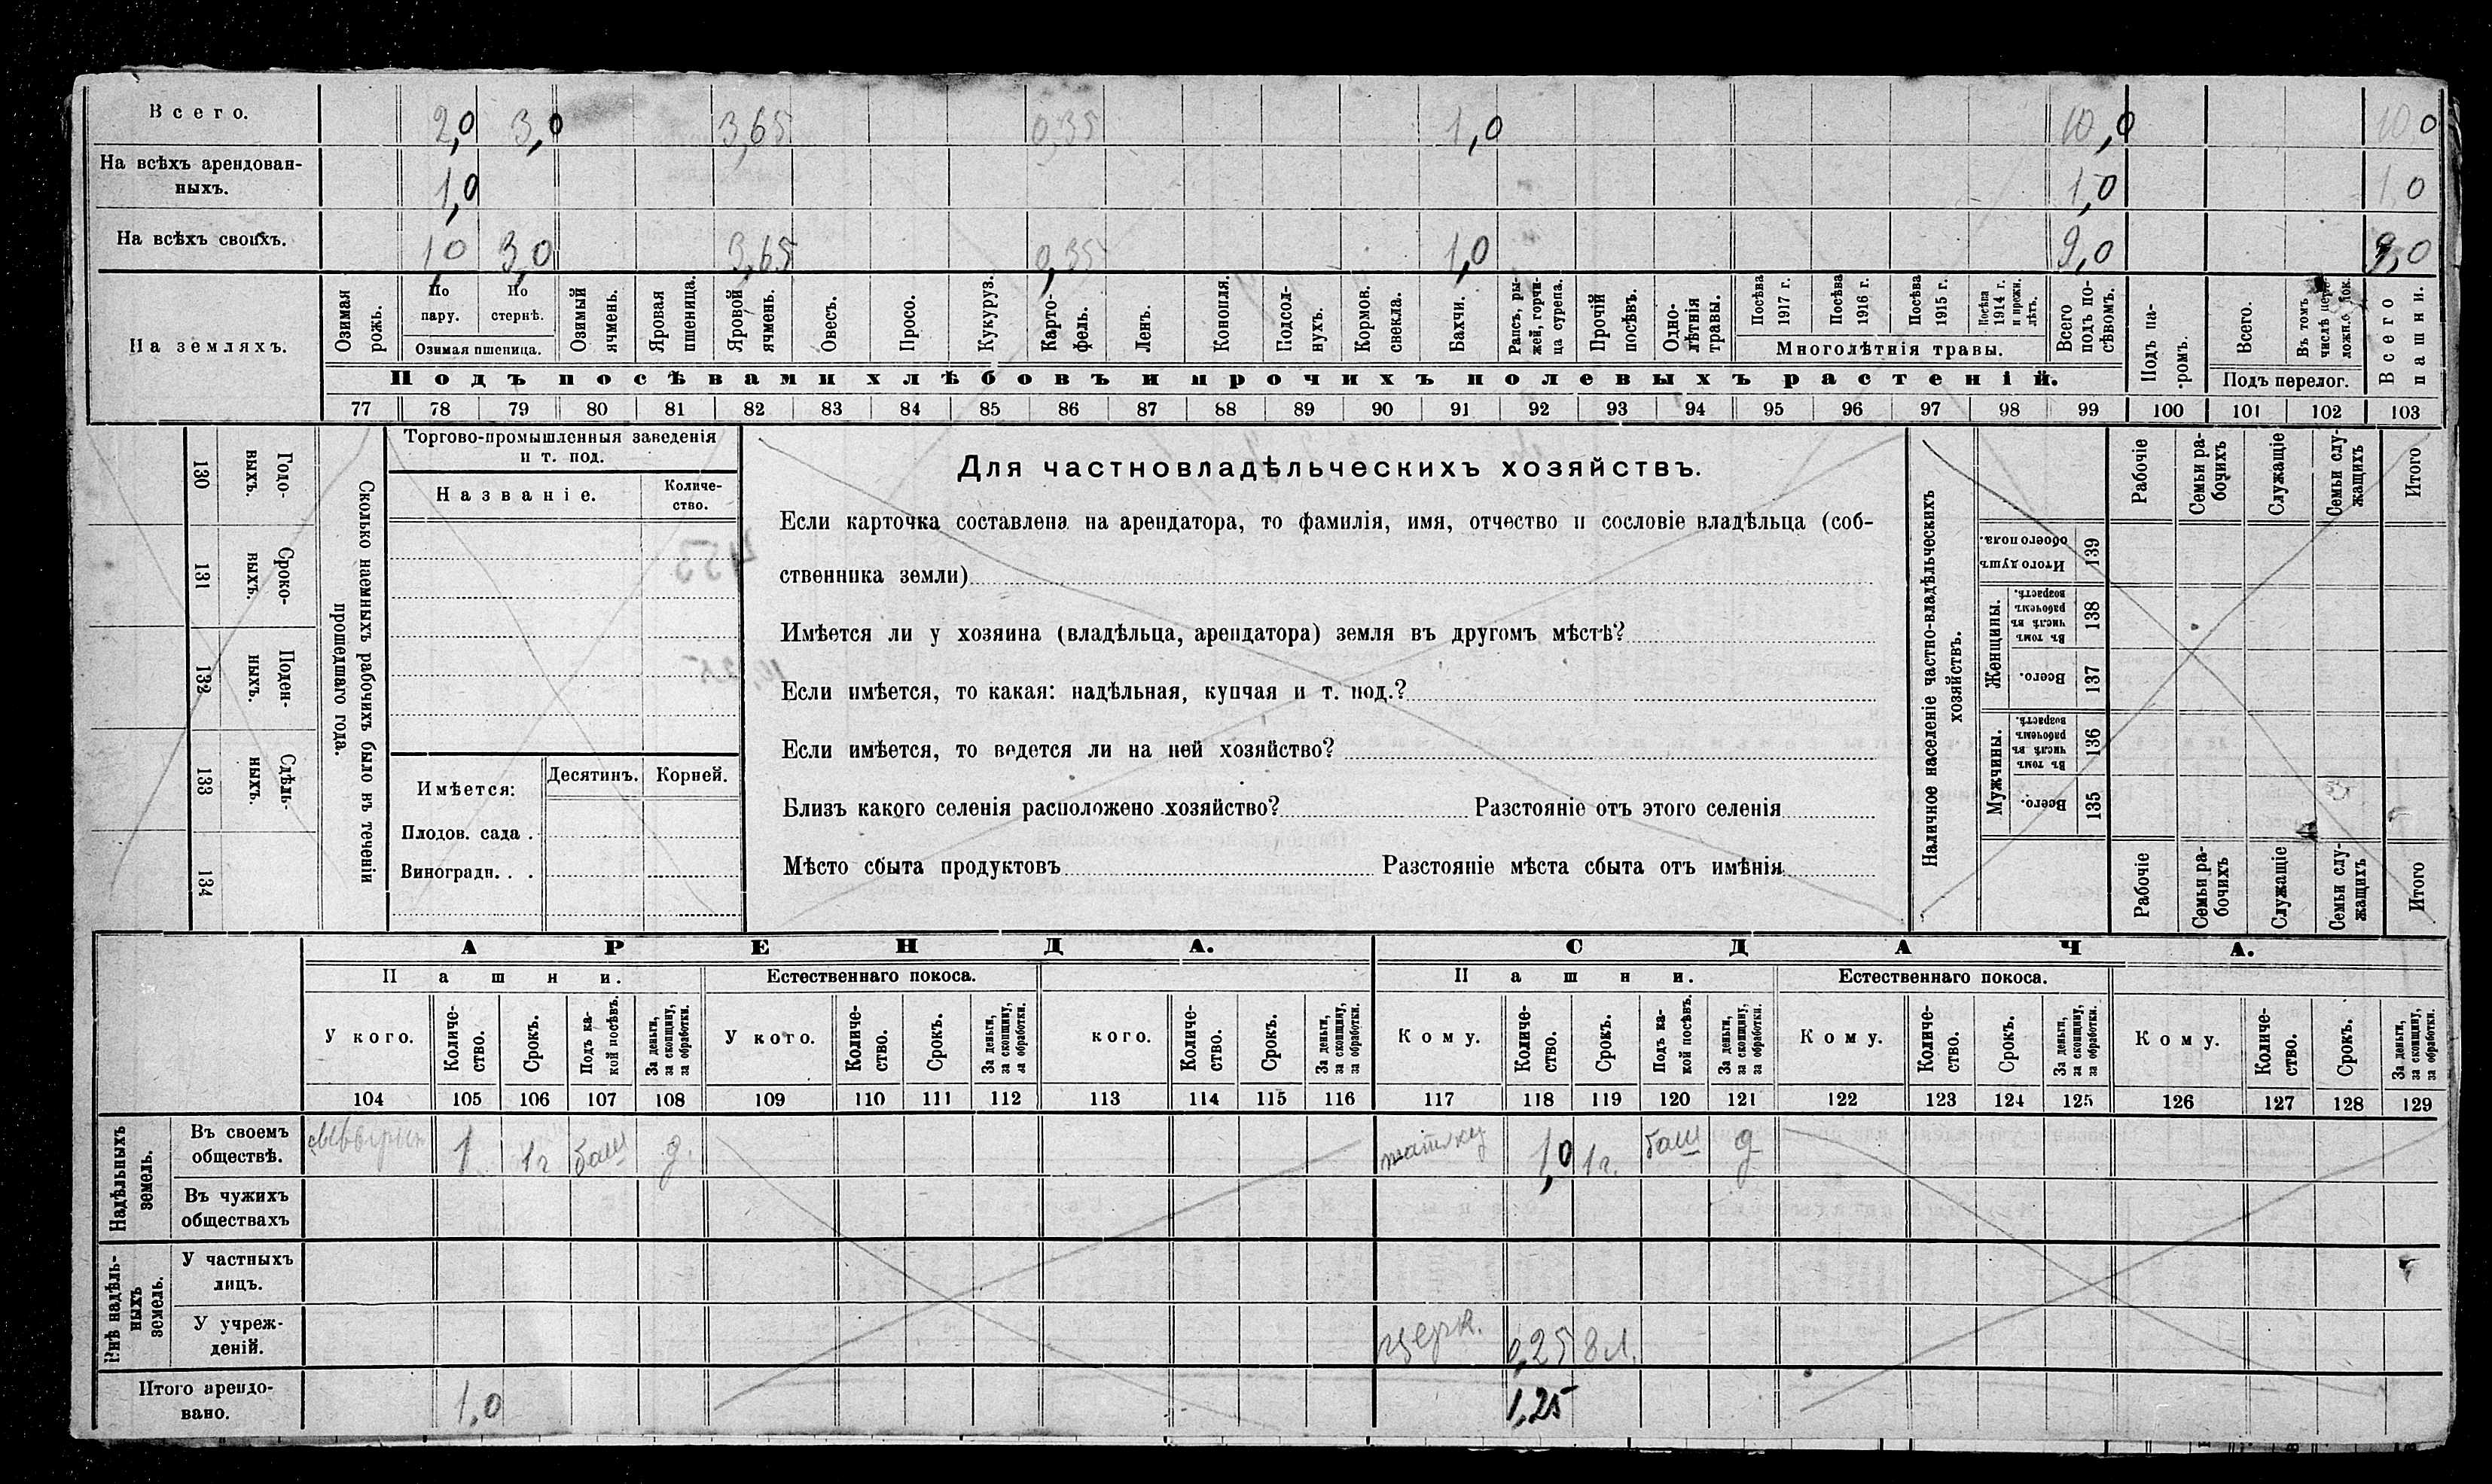 Всего. 2,0 3,0 3,65 0,35 1,0 10,0 10 0
На всѣхъ арендован-
ныхъ. 1,0 1,0 1,0
На всѣхъ своихъ. 1,0 3,0 3,65 0,35 1,0 9,0 9,0
На земляхъ.
Озимая рожь.
По пару.
По стернѣ.
Озимая пшеница.
Озимый ячмень.
Яровая пшеница.
Яровой ячмень.
Овесъ.
Просо.
Кукуруз.
Карто-
фель.
Ленъ.
Конопля.
Подсол-
нухъ.
Кормов. свекла.
Бахчи.
Рапсъ, ры-
жей, горчи-
ца сурепа.
Прочій посѣвъ.
Одно-
лѣтнія травы.
Посѣва 1917 г.
Посѣва 1916 г.
Посѣва 1915 г.
Посѣва 1914 г. и прежн. лѣтъ.
Многолѣтнія травы.
Всего подъ по-
сѣвомъ.
Подъ па-
ромъ.
Всего.
Въ томъ числѣ
Подъ перелог.
Всего пашни.
Подъ посѣвами хлѣбовъ и прочихъ полевыхъ растеній.
77 78 79 80 81 82 83 84 85 86 87 88 89 90 91 92 93 94 95 96 97 98 99 100 101 102 103
130 Годо-
выхъ.
131 Сроко-
выхъ.
132 Поден-
ныхъ.
133 Сдѣль-
ныхъ.
134
Сколько наемныхъ рабочихъ было въ теченіи
прошедшаго года.
Торгово-промышленныя заведенія
и т. под.
Названіе.
Количе-
ство.
Имѣется: Десятинъ. Корней.
Плодов. сада .
Виноградн. . .
Для частновладѣльческихъ хозяйствъ.
Если карточка составлена на арендатора, то фамилія, имя, отчество и сословіе владѣльца (соб-
ственника земли)
Имѣется ли у хозяина (владѣльца, арендатора) земля въ другомъ мѣстѣ?
Если имѣется, то какая: надѣльная, купчая и т. под.?
Если имѣется, то ведется ли на ней хозяйство?
Близъ какого селенія расположено хозяйство? Разстояніе отъ этого селенія
Мѣсто сбыта продуктовъ Разстояніе мѣста сбыта отъ имѣнія
Наличное населеніе частно-владѣльческихъ
хозяйствъ.
Рабочіе
Семьи ра-
бочихъ
Служащіе
Семьи слу-
жащихъ
Итого
Итого душъ обоего пола. 139
Женщины.
Въ томъ числѣ въ рабочемъ возрастѣ. 138
Всего. 137
Мужчины.
Въ томъ числѣ въ рабочемъ возрастѣ. 136
Всего. 135
Рабочіе
Семьи ра-
бочихъ
Служащіе
Семьи слу-
жащихъ
Итого
АРЕНДА. СДАЧА.
Пашни. Естественнаго покоса. Пашни. Естественнаго покоса.
У кого.
Количе-
ство.
Срокъ.
Подъ ка-
кой посѣвъ.
За деньги, за скопщину, за обработки.
У кого.
Количе-
ство.
Срокъ.
За деньги, за скопщину, за обработки.
кого.
Количе-
ство.
Срокъ.
За деньги, за скопщину, за обработки.
Кому.
Количе-
ство.
Срокъ.
Подъ ка-
кой посѣвъ.
За деньги, за скопщину, за обработки.
Кому.
Количе-
ство.
Срокъ.
За деньги, за скопщину, за обработки.
Кому.
Количе-
ство.
Срокъ.
За деньги, за скопщину, за обработки.
104 105 106 107 108 109 110 111 112 113 114 115 116 117 118 119 120 121 122 123 124 125 126 127 128 129
Надѣльныхъ
земель.
Въ своемъ
обществѣ. 1 1г баш д. 1,0 1г. баш д
Въ чужихъ
обществахъ
Внѣ надѣль-
ныхъ
земель.
У частныхъ
лицъ.
У учреж-
деній. церк. 0,25 3 л.
Итого арендо-
вано. 1,0 1,25